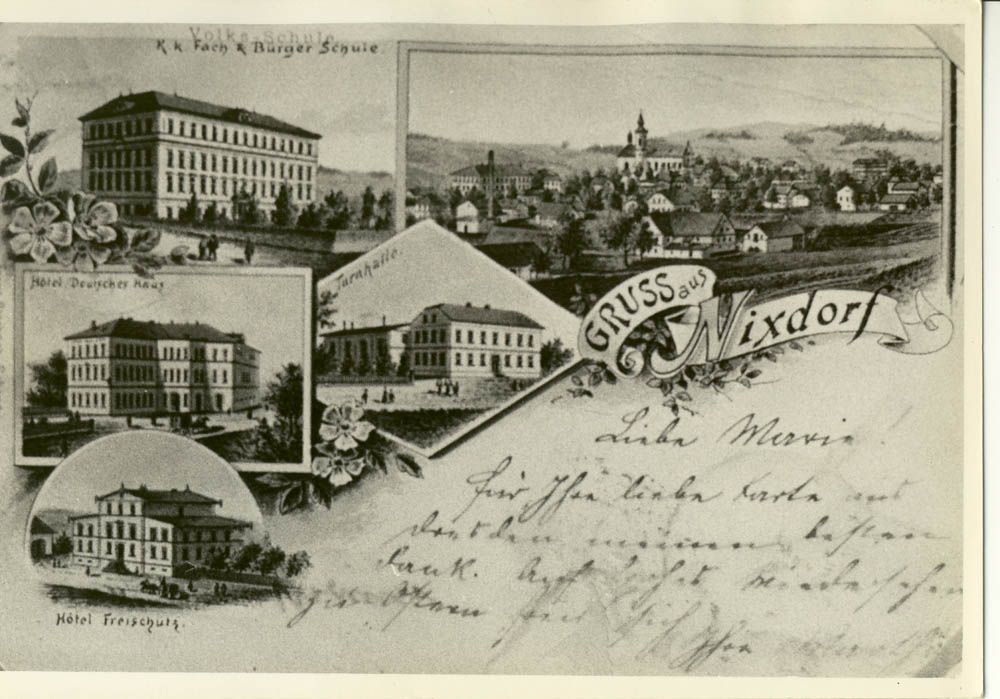 Volks-Schule
K. k. Fach & Bürger Schule.
Hôtel Deutsches Haus
Turnhalle.
GRUSS aus Nixdorf
Hôtel Freischütz.
Liebe Marie!
für Ihre liebe Karte aus
Dresden meinen besten
Dank. Auf Wiedersehen
zu Ostern
Ihre